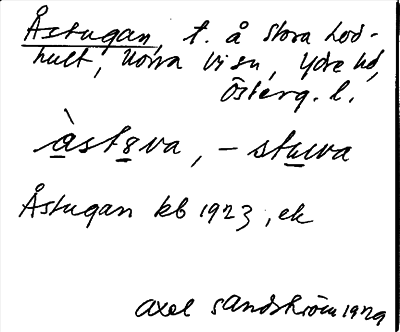 Åstugan, t. å Stora Hod-
hult, Norra Vi sn, Ydre hd,
Österg. l.
àstɞva, – stuva
Åstugan kb 1923, ek
Axel Sandström 1929